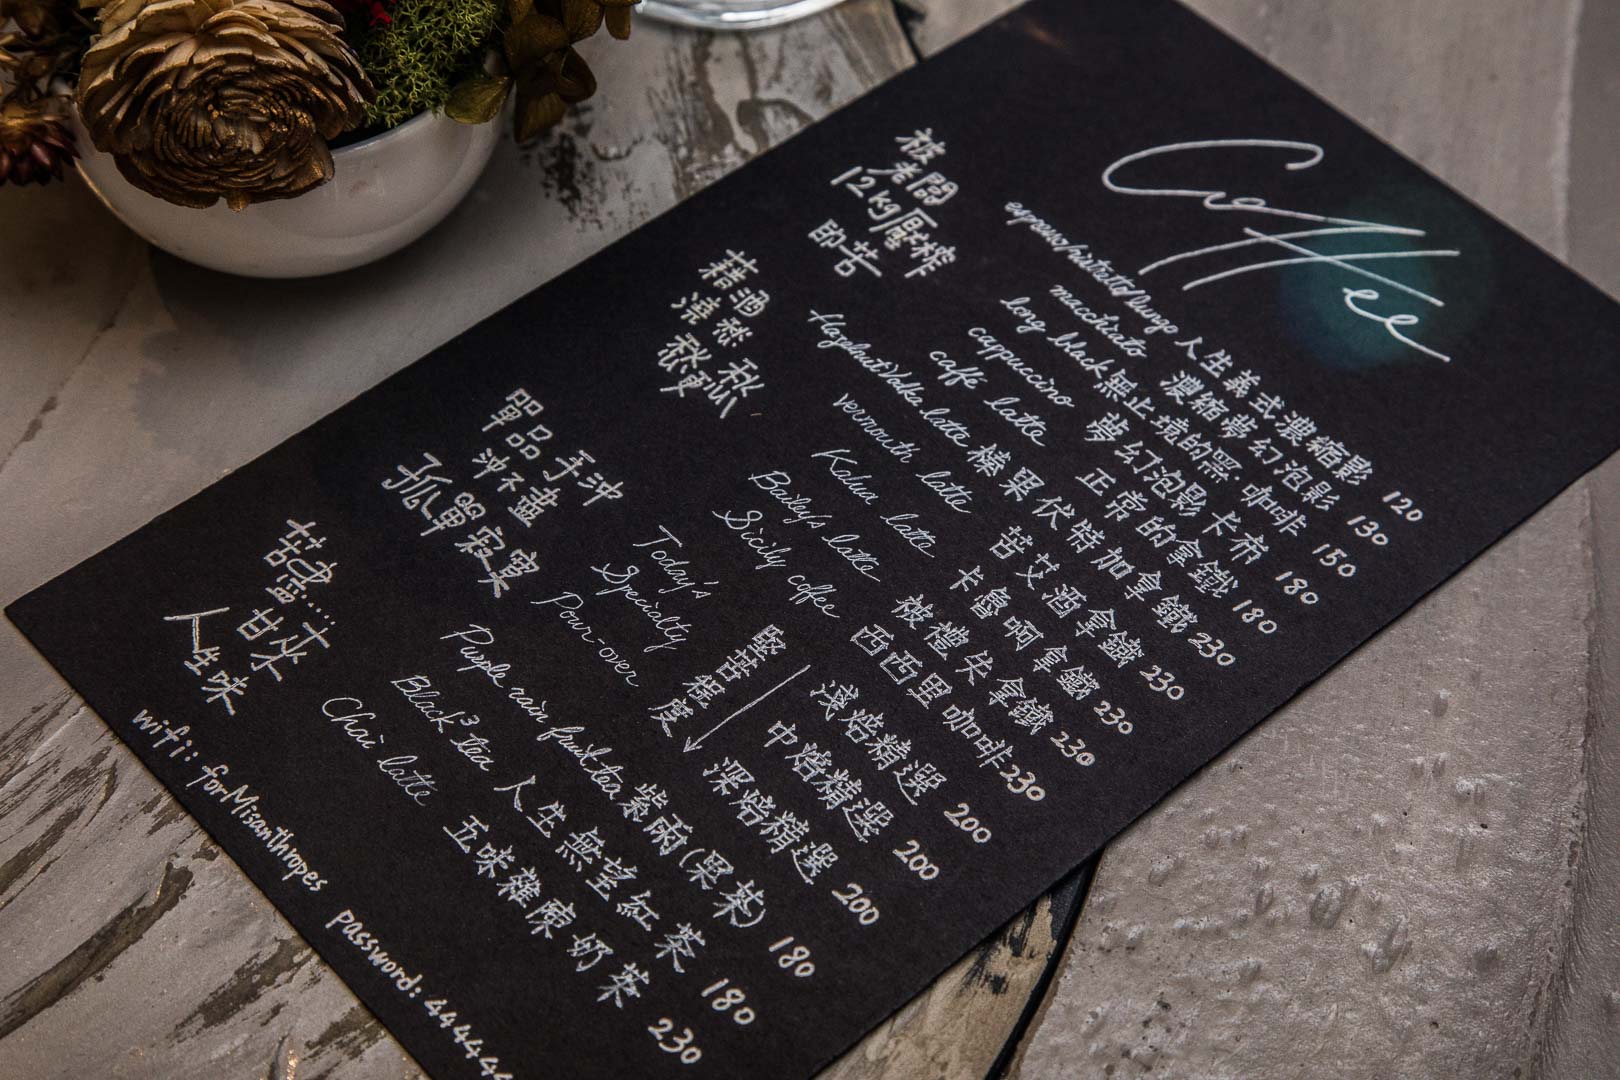 Coffee
被老闆
12kg壓榨
即苦
espresso/ristretto/lungo 人生義式濃縮影 120
macchiato 濃縮夢幻泡影 130
long black 無止境的黑咖啡 150
cappuccino 夢幻泡影卡布 180
caffé latte 正常的拿鐵 180
藉酒
澆愁愁
Hazelnut Vodka latte 榛果伏特加拿鐵 230
vermouth latte 苦艾酒拿鐵 230
Kahua latte 卡魯啊拿鐵 230
Bailey's latte 被禮失拿鐵 230
Sicily coffee 西西里咖啡 230
單品手沖
沖不盡
孤單寂寞
Today's
Specialty
Pour-over
堅苦程度
淺焙精選 200
中焙精選 200
深焙精選 200
苦盡…
甘來
人生味
Purple rain fruit tea 紫雨(果茶) 180
Black³ tea 人生無望紅茶 180
Chai latte 五味雜陳奶茶 230
wifi: forMisanthropes password: 444444